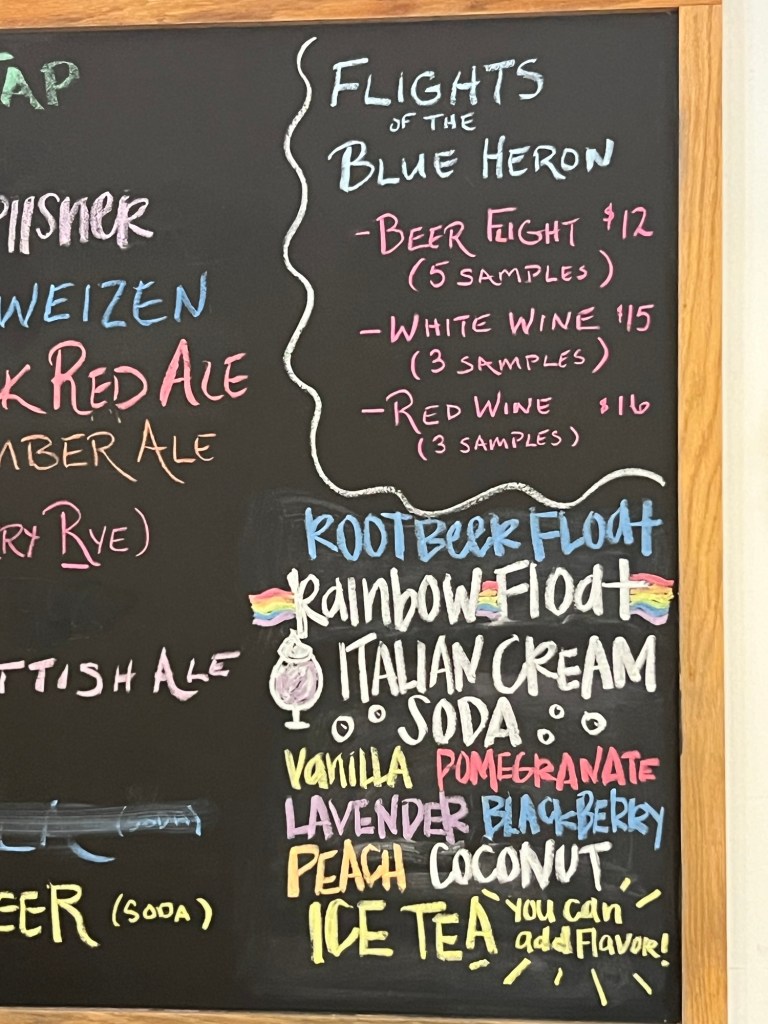 TAP
PIlsner
WEIZEN
K RED ALE
MBER ALE
RY RYE)
TTISH ALE
(SODA)
EER (SODA)
FLIGHTS
OF THE
BLUE HERON
- BEER FLIGHT $12
(5 SAMPLES)
- WHITE WINE $15
(3 SAMPLES)
- RED WINE $16
(3 SAMPLES)
ROOT Beer FLoat
Rainbow Float
ITALIAN CREAM
SODA
VaniLLA POMEGRANATE
LAVENDER BLACKBERRY
PEACH COCONUT
ICE TEA you can
add Flavor!